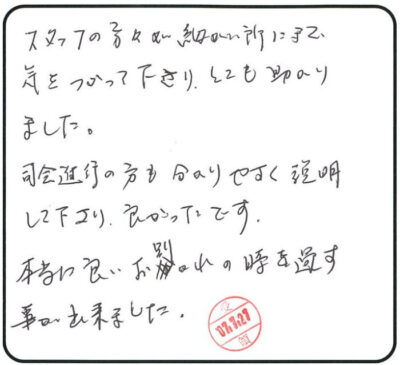 スタッフの方々が細かい所にまで
気をつかって下さり、とても助かり
ました。
司会進行の方も分かりやすく説明
して下さり、良かったです。
本当に良いお別れの時を過す
事が出来ました。
07.7.27